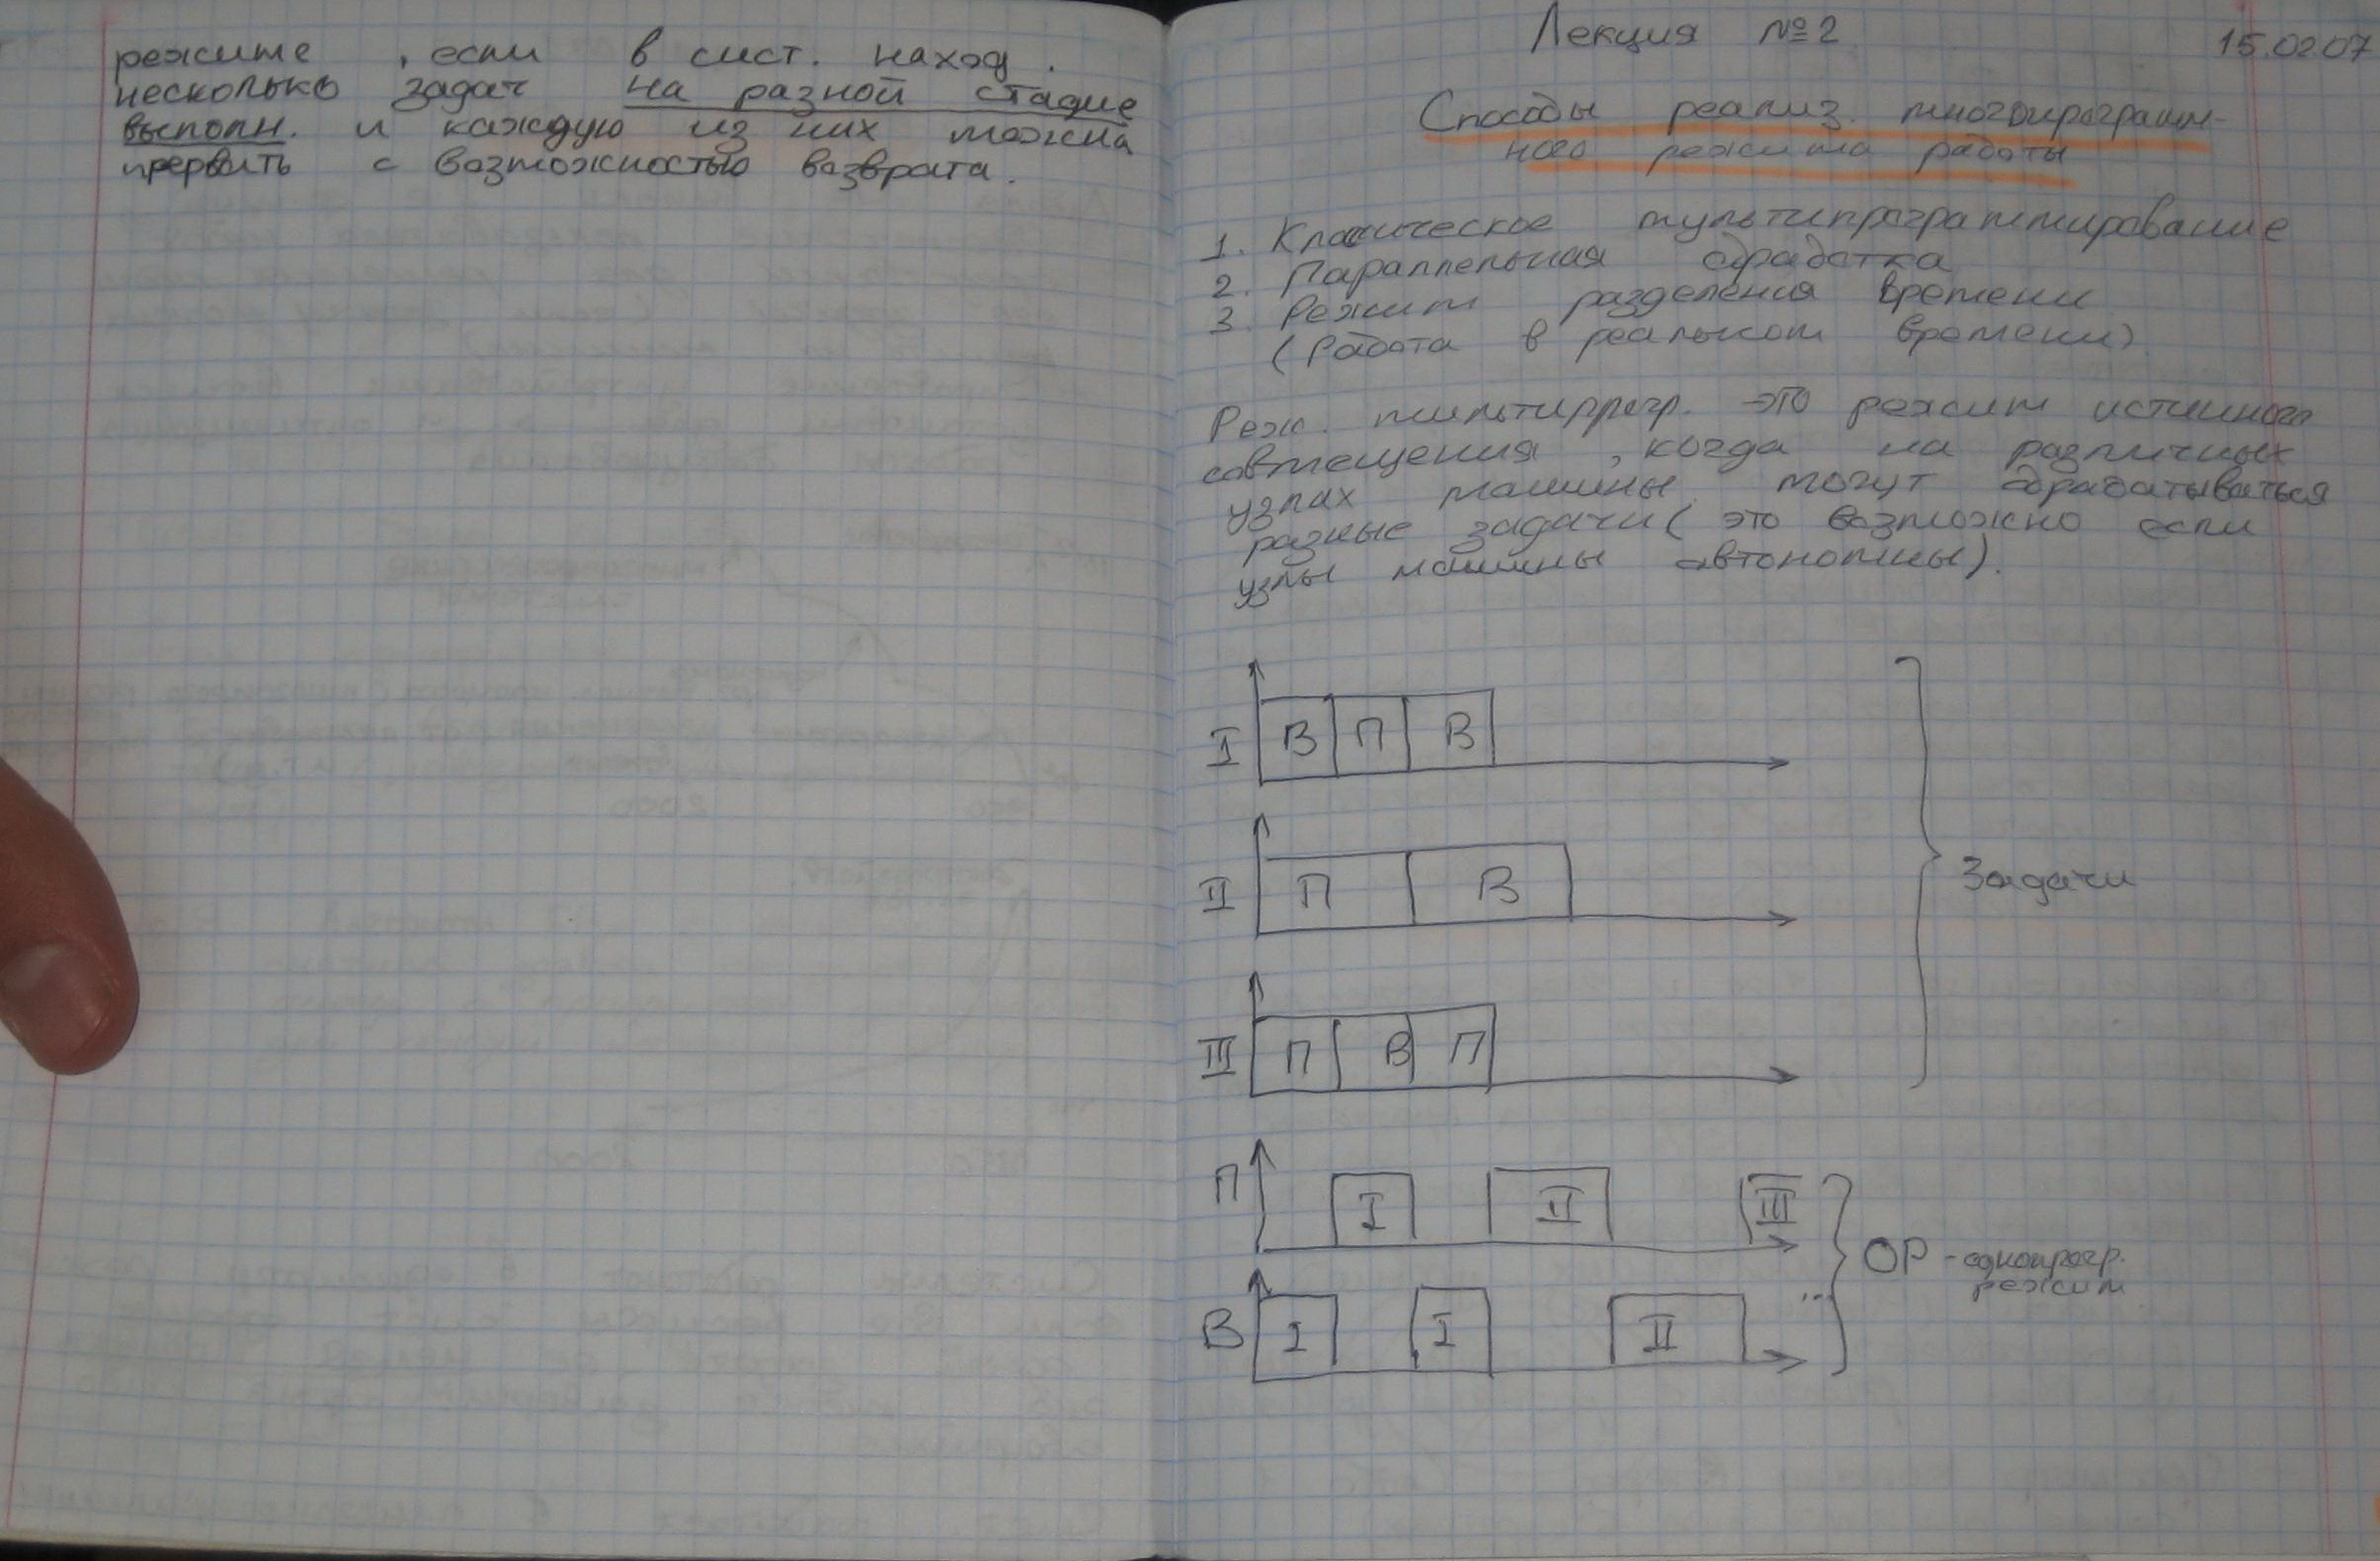 режиме , если в сист. наход.
несколько задач на разной стадие
выполн. и каждую из них можна
прервать с возможностью возврата.
Лекция №2
15.02.07
Способы реализ. многопрограмм-
ного режима работы
1. Классическое мультипрограммирование
2. Параллельная обработка
3. Режим разделения времени
(Работа в реальном времени)
Реж. мультиррогр. - это режим истинного
совмещения , когда на различных
узлах машины могут обрабатываться
разные задачи ( это возможно если
узлы машины автономны).
I В П В
II П В
Задачи
III П В П
П I II III
ОР - однопрогр.
режим
В I I II ...